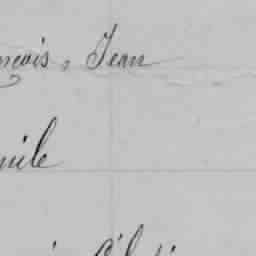 nçois, Jean
mile